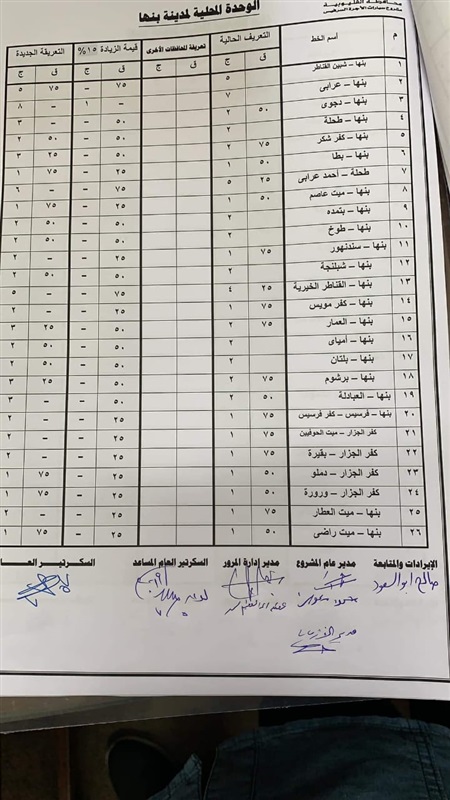 محافظة القليوبية
مشروع سيارات الأجرة السرفيس
الوحدة المحلية لمدينة بنها
م أسم الخط التعريف الحالية تعريفة المحافظات الأخرى قيمة الزيادة ١٥% التعريفة الجديدة
ق ج ق ج ق ج ق ج
١ بنها – شبين القناطر ٥ ٧٥ – ٧٥ ٥
٢ بنها – عرابى ٧ – ١ – ٨
٣ بنها – دجوى ٥٠ ٢ ٥٠ – – ٣
٤ بنها – طحلة ٢ ٥٠ – ٥٠ ٢
٥ بنها – كفر شكر ٧٥ ٢ ٥٠ – ٢٥ ٣
٦ بنها – بطا ٥٠ ١ ٢٥ – ٧٥ ١
٧ طحلة – أحمد عرابى ٢٥ ٥ ٧٥ – – ٦
٨ بنها – ميت عاصم ٥٠ ١ ٢٥ – ٧٥ ١
٩ بنها – بتمده ٢ ٥٠ – ٥٠ ٢
١٠ بنها – طوخ ٢ ٥٠ – ٥٠ ٢
١١ بنها – سندنهور ٧٥ ١ ٢٥ – – ٢
١٢ بنها – شبلنجة ٢ ٥٠ – ٥٠ ٢
١٣ بنها – القناطر الخيرية ٢٥ ٤ ٧٥ – – ٥
١٤ بنها – كفر مويس ٧٥ ١ ٢٥ – – ٢
١٥ بنها – العمار ٧٥ ٢ ٥٠ – ٢٥ ٣
١٦ بنها – أمياى ٢ ٥٠ – ٥٠ ٢
١٧ بنها – بلتان ٢ ٥٠ – ٥٠ ٢
١٨ بنها – برشوم ٧٥ ٢ ٥٠ – ٢٥ ٣
١٩ بنها – العبادلة ٥٠ ٢ ٥٠ – – ٣
٢٠ بنها – فرسيس – كفر فرسيس ٧٥ ١ ٢٥ – – ٢
٢١ كفر الجزار – ميت الحوفيين ٧٥ ١ ٢٥ – – ٢
٢٢ كفر الجزار – بقيرة ٧٥ ١ ٢٥ – – ٢
٢٣ كفر الجزار – دملو ٥٠ ١ ٢٥ – ٧٥ ١
٢٤ كفر الجزار – ورورة ٥٠ ١ ٢٥ – ٧٥ ١
٢٥ بنها – ميت العطار ٧٥ ١ ٢٥ – – ٢
٢٦ بنها – ميت راضى ٥٠ ١ ٢٥ – ٧٥ ١
الإيرادات والمتابعة مدير عام المشروع مدير إدارة المرور السكرتير العام المساعد السكرتير العـا
صالح ابو السعود